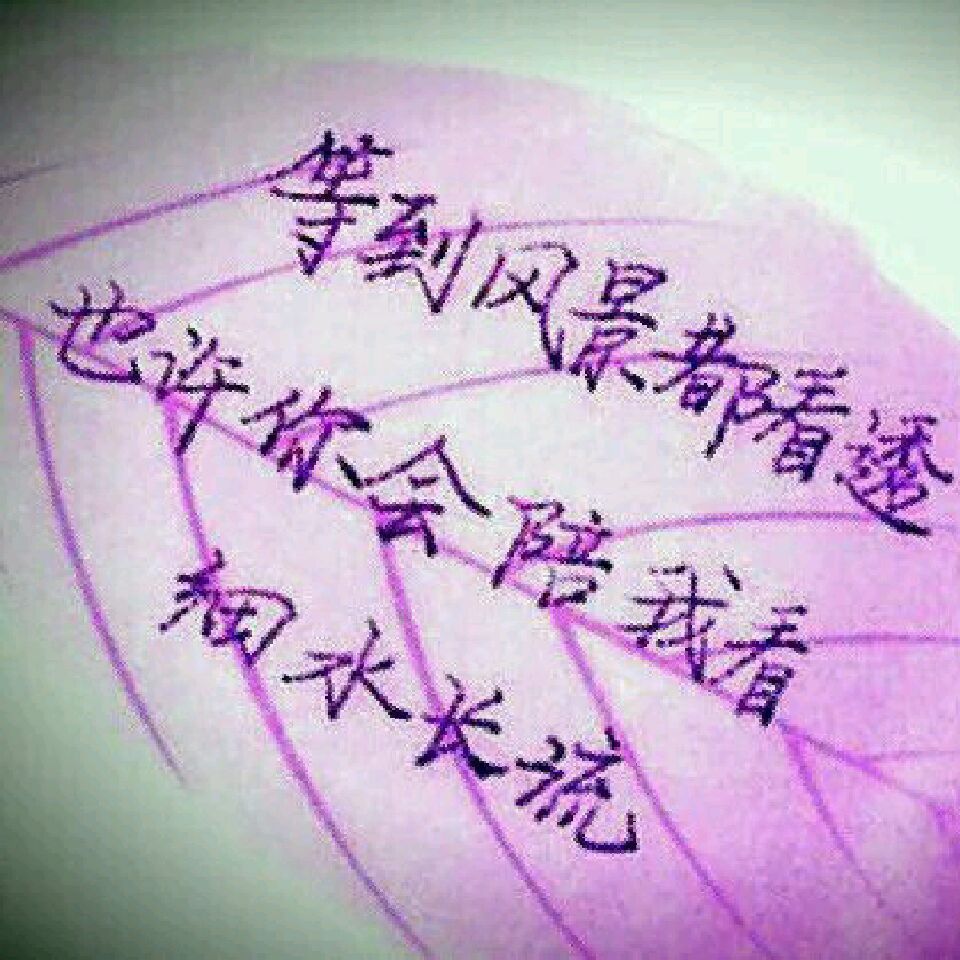 等到风景都看透
也许你会陪我看
细水长流